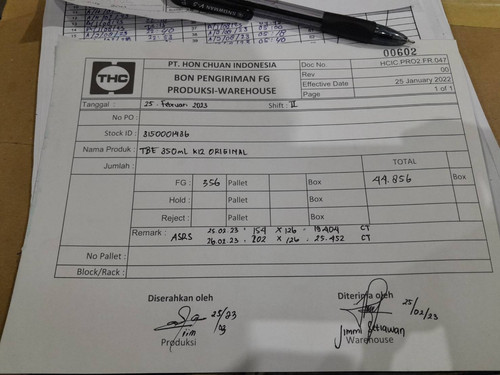 00602
THC
PT. HON CHUAN INDONESIA
BON PENGIRIMAN FG
PRODUKSI-WAREHOUSE
Doc No. HCIC.PRO2.FR.047
Rev 00
Effective Date 25 January 2022
Page 1 of 1
Tanggal : 25 - Februari 2023 Shift : II
No PO :
Stock ID : 3150001436
Nama Produk : TBE 350ML K12 ORIGINAL
Jumlah : TOTAL
FG : 356 Pallet Box 44.856 Box
Hold : Pallet Box
Reject : Pallet Box
Remark : ASRS 25.02.23 . 154 x 126 . 19.404 CT
26.02.23 . 202 x 126 . 25.452 CT
No Pallet :
Block/Rack :
Diserahkan oleh Diterima oleh
25/23 25/02/23
Jimmi Setiawan
Produksi Warehouse